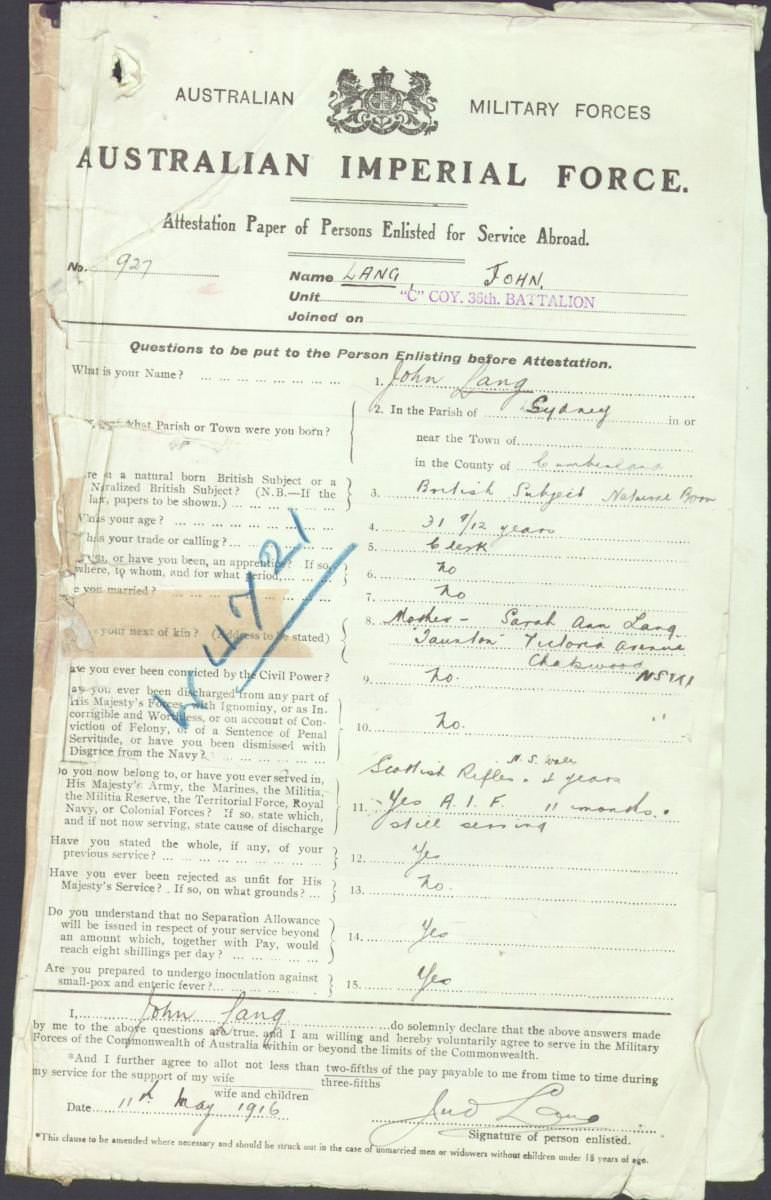 AUSTRALIAN MILITARY FORCES
AUSTRALIAN IMPERIAL FORCE.
Attestation Paper of Persons Enlisted for Service Abroad.
No. 927
Name LANG, JOHN.
Unit "C" COY. 36th. BATTALION
Joined on
Questions to be put to the Person Enlisting before Attestation.
What is your Name? ... 1. John Lang
what Parish or Town were you born? 2. In the Parish of Sydney in or
near the Town of
in the County of Cumberland
a natural born British Subject or a
Naturalized British Subject? (N.B.—If the 3. British Subject Natural Born
papers to be shown.)
your age? ... 4. 31 9/12 years
your trade or calling? ... 5. Clerk
or have you been, an apprentice? If so,
where, to whom, and for what period, 6. No
you married? 7. No
your next of kin? (Address to be stated) 8. Mother - Sarah Ann Lang
"Taunton" Victoria Avenue
Chatswood NSW
W4721
ave you ever been convicted by the Civil Power? 9. No.
you ever been discharged from any part of
His Majesty's Forces with Ignominy, or as In-
corrigible and Worthless, or on account of Con-
viction of Felony, or of a Sentence of Penal 10. No.
Servitude, or have you been dismissed with
Disgrace from the Navy?
Do you now belong to, or have you ever served in, Scottish Rifles N. S. Wales 4 years
His Majesty's Army, the Marines, the Militia,
the Militia Reserve, the Territorial Force, Royal
Navy, or Colonial Forces? If so, state which, 11. Yes A. I. F. 11 months.
and if not now serving, state cause of discharge still serving
Have you stated the whole, if any, of your
previous service? ... 12. Yes
Have you ever been rejected as unfit for His
Majesty's Service? If so, on what grounds? ... 13. No.
Do you understand that no Separation Allowance
will be issued in respect of your service beyond
an amount which, together with Pay, would 14. Yes
reach eight shillings per day? ...
Are you prepared to undergo inoculation against
small-pox and enteric fever? ... 15. Yes
I, John Lang do solemnly declare that the above answers made
by me to the above questions are true, and I am willing and hereby voluntarily agree to serve in the Military
Forces of the Commonwealth of Australia within or beyond the limits of the Commonwealth.
*And I further agree to allot not less than two-fifths of the pay payable to me from time to time during
three-fifths
my service for the support of my wife
wife and children
Date 11th May 1916 Jno Lang
Signature of person enlisted.
*This clause to be amended where necessary and should be struck out in the case of unmarried men or widowers without children under 18 years of age.